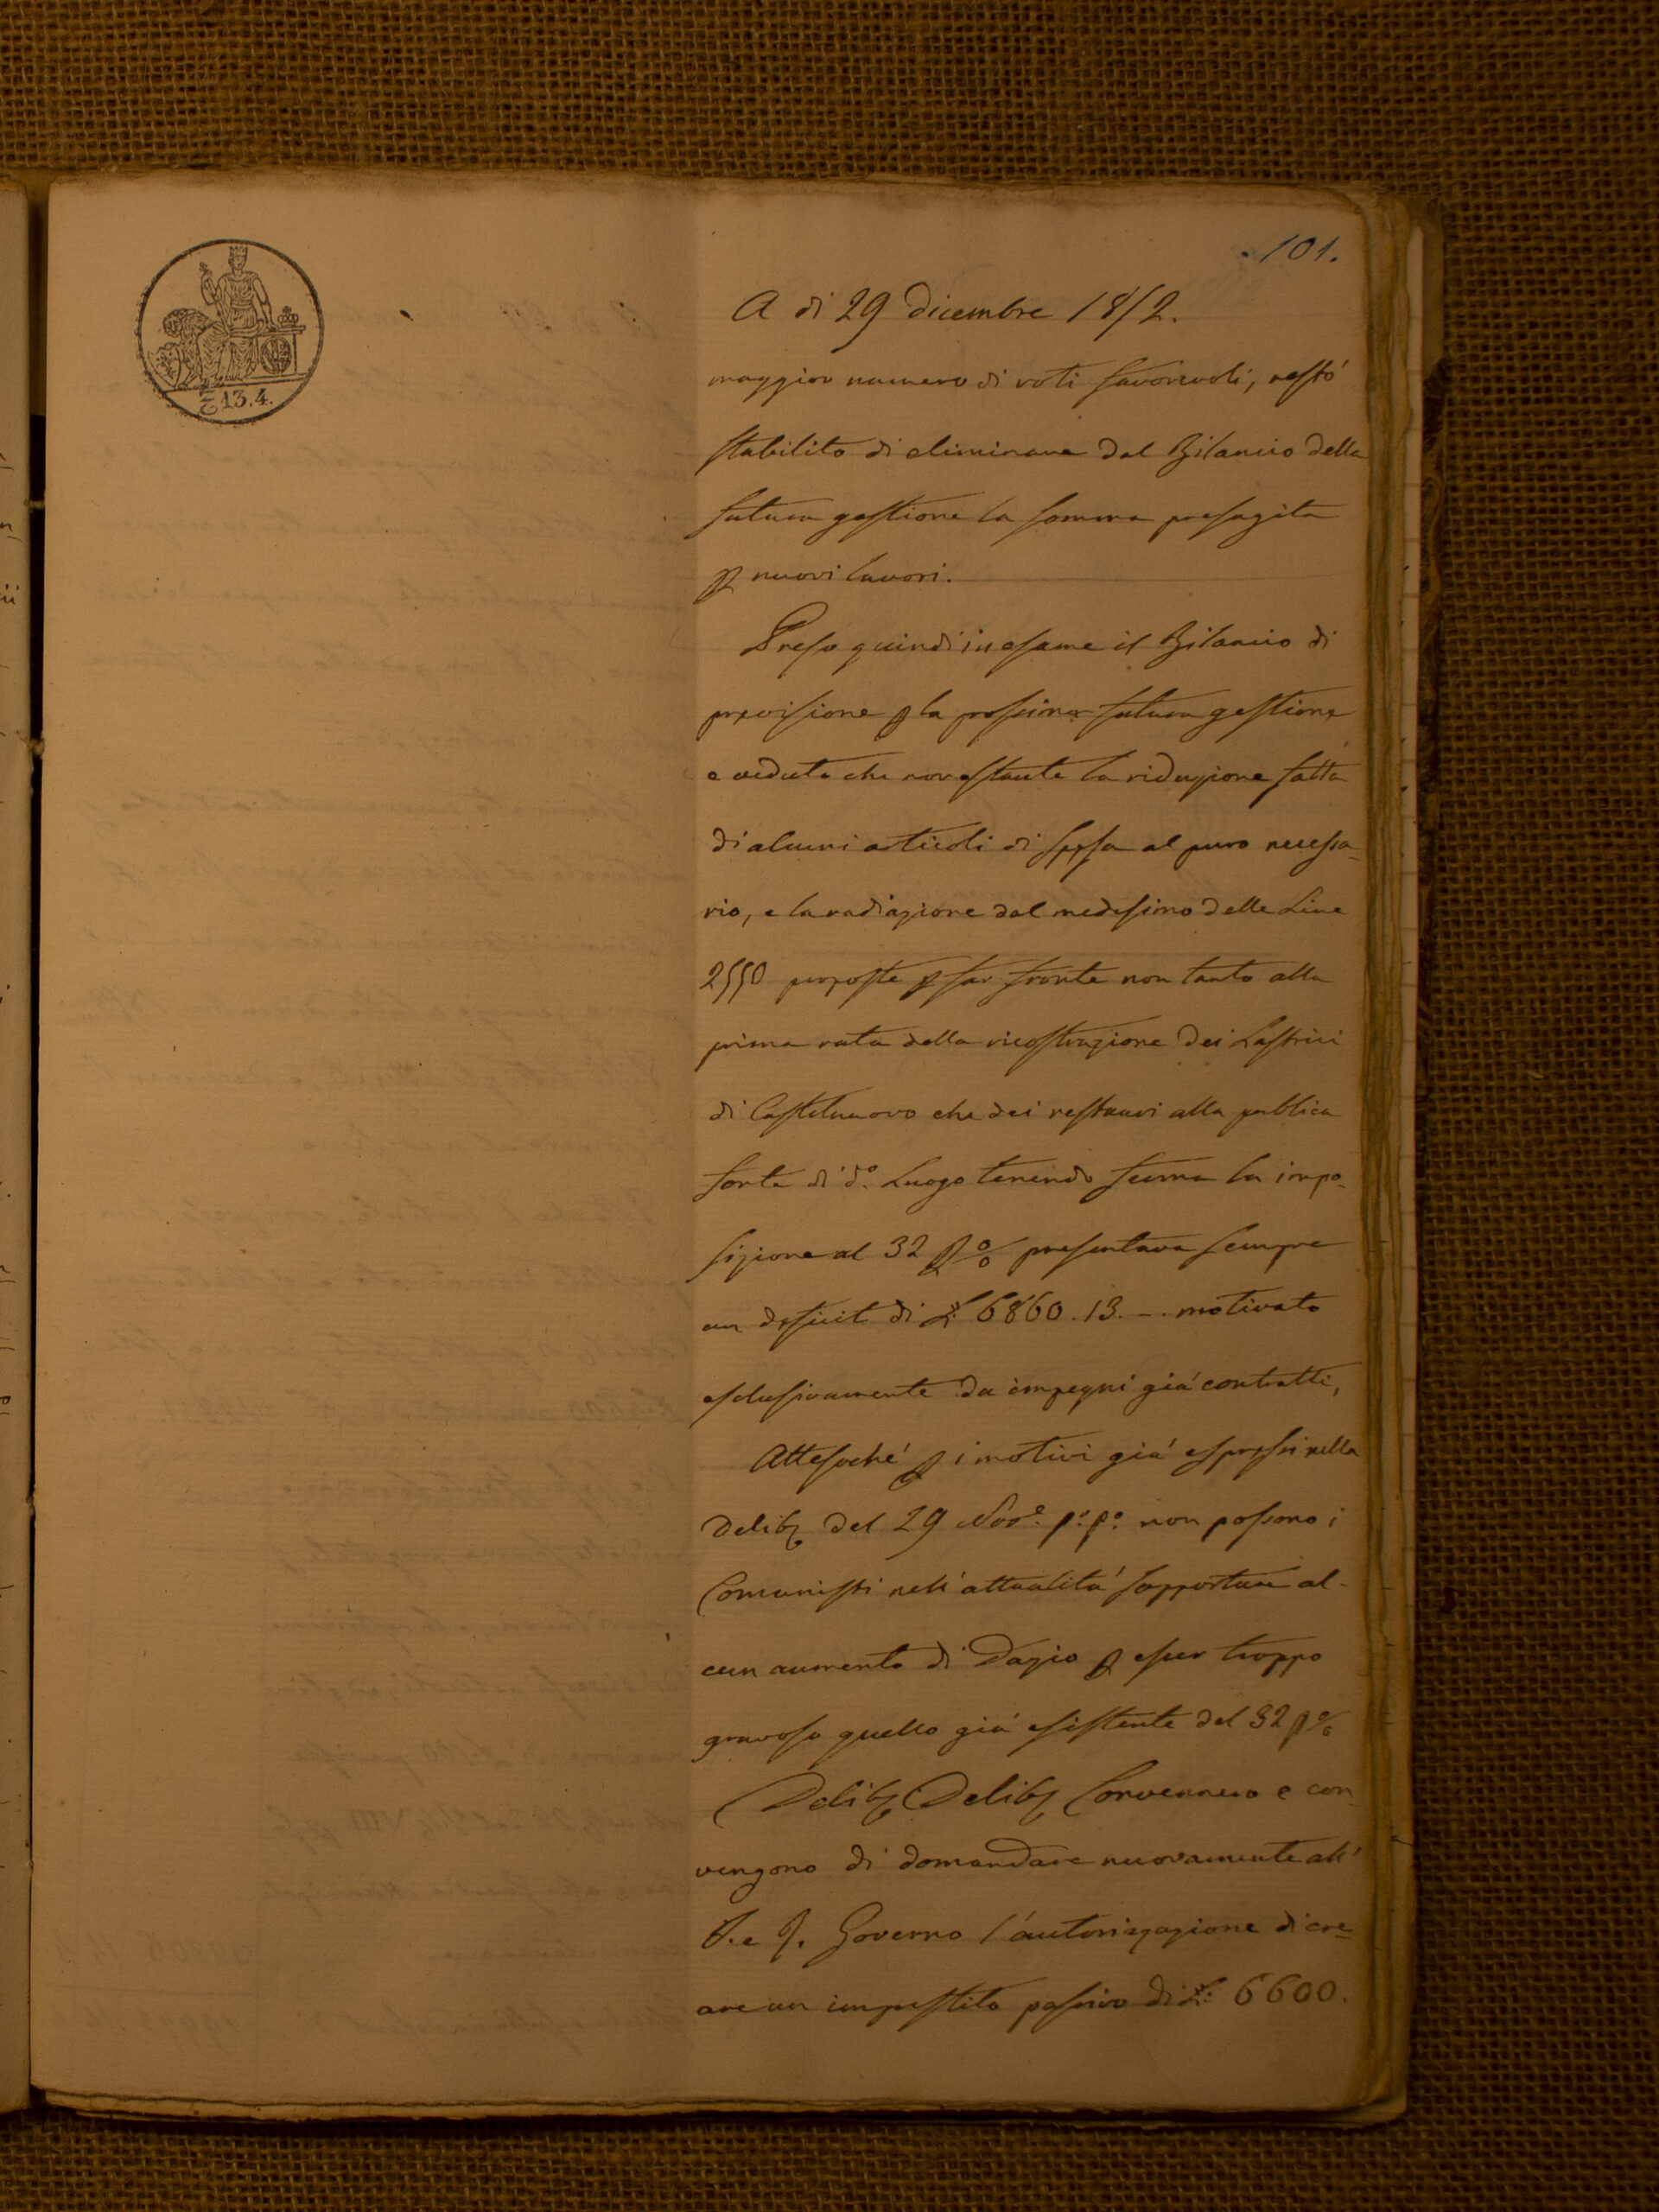 101.
A dì 29 Dicembre 1852.
13.4.
maggior numero di voti favorevoli, restò
stabilito di eliminare dal Bilancio della
futura gestione la somma presagita
p nuovi lavori.
Preso quindi in esame il Bilancio di
previsione p la prossima futura gestione
e veduto che nonostante la riduzione fatta
di alcuni articoli di spesa al puro necessa-
rio, e la radiazione dal medesimo delle Lire
2550 proposte p far fronte non tanto alla
prima rata della ricostruzione dei Lastrici
di Castelnuovo che dei restauri alla pubblica
fonte di do. Luogo tenendo ferma la impo-
sizione al 32 p % presentava sempre
un deficit di £ 6860.13.-. motivato
esclusivamente da impegni già contratti,
Attesoché p i motivi già espressi nella
Delib del 29 Nove. po. po. non possono i
Comunisti nell'attualità sopportare al-
cun aumento di Dazio p esser troppo
gravoso quello già esistente del 32 p %
Delib Delib Convennero e con-
vengono di domandare nuovamente all'
I. e R. Governo l'autorizzazione di cre-
are un imprestito passivo di £ 6600.